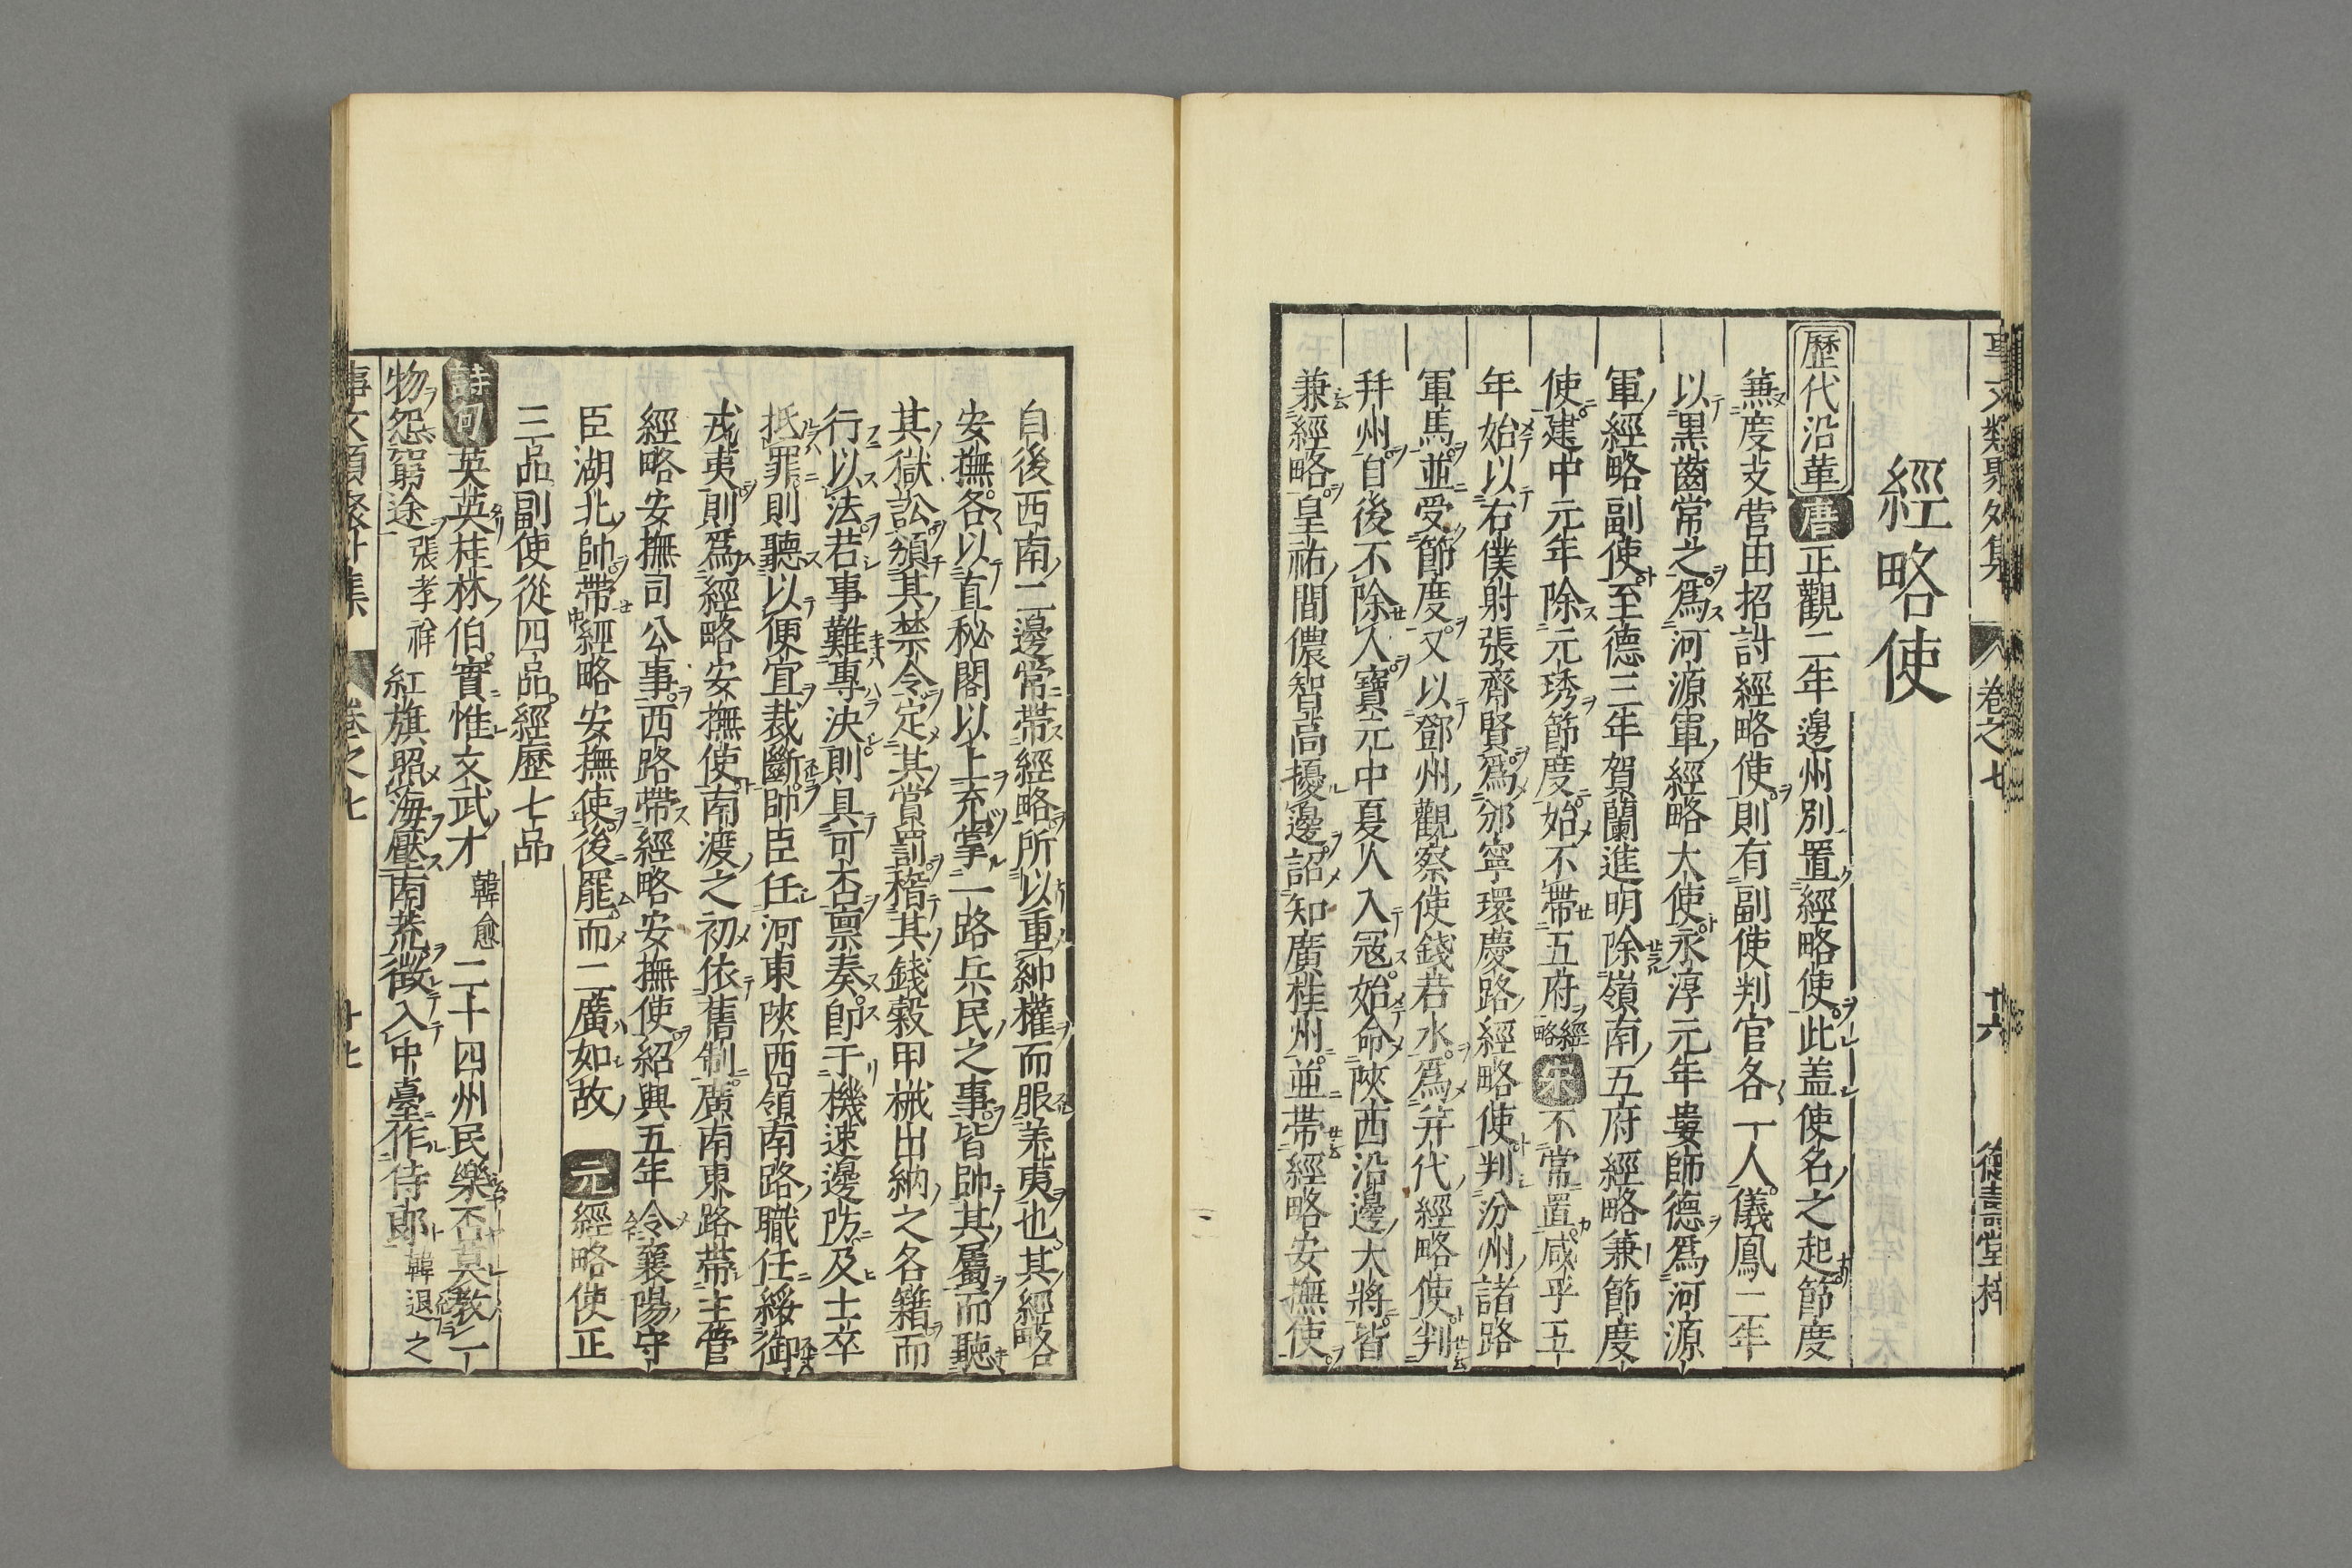 事文類聚外集 卷之七 廿六 德壽堂梓
經略使
歷代沿革 唐 正觀二年邊州別置經略使此盖使名之起節度
兼度支營田招討經略使則有副使判官各一人儀鳳二年
以黒齒常之爲河源軍經略大使永淳元年婁師德爲河源
軍經略副使至德三年賀蘭進明除嶺南五府經略兼節度
使建中元年除元琇節度始不帶五府經略 宋 不常置咸平五
年始以右僕射張齊賢爲邠寧環慶路經略使判汾州諸路
軍馬並受節度又以鄧州觀察使錢若水爲并代經略使判
并州自後不除人寶元中夏人入冦始命陝西沿邊大將皆
兼經略皇祐間儂智高擾邊詔知廣桂州並帶經略安撫使
自後西南二邊常帶經略所以重帥權而服羌夷也其經略
安撫各以直秘閣以上充掌一路兵民之事皆帥其屬而聽
其獄訟頒其禁令定其賞罰稽其錢穀甲械出納之名籍而
行以法若事難專決則具可否禀奏即于機速邊防及士卒
抵罪則聽以便宜裁斷帥臣任河東陝西嶺南路職任綏御
戎夷則爲經略安撫使南渡之初依舊制廣南東路帶主管
經略安撫司公事西路帶經略安撫使紹興五年令襄陽守
臣湖北帥帶經略安撫使後罷而二廣如故 元 經略使正
三品副使從四品經歷七品
詩句 英英桂林伯實惟文武才 韓愈 二十四州民樂否莫教一
物怨窮途 張孝祥 紅旗照海壓南荒徵入中臺作侍郎 韓退之
事文類聚外集 卷之七 廿七